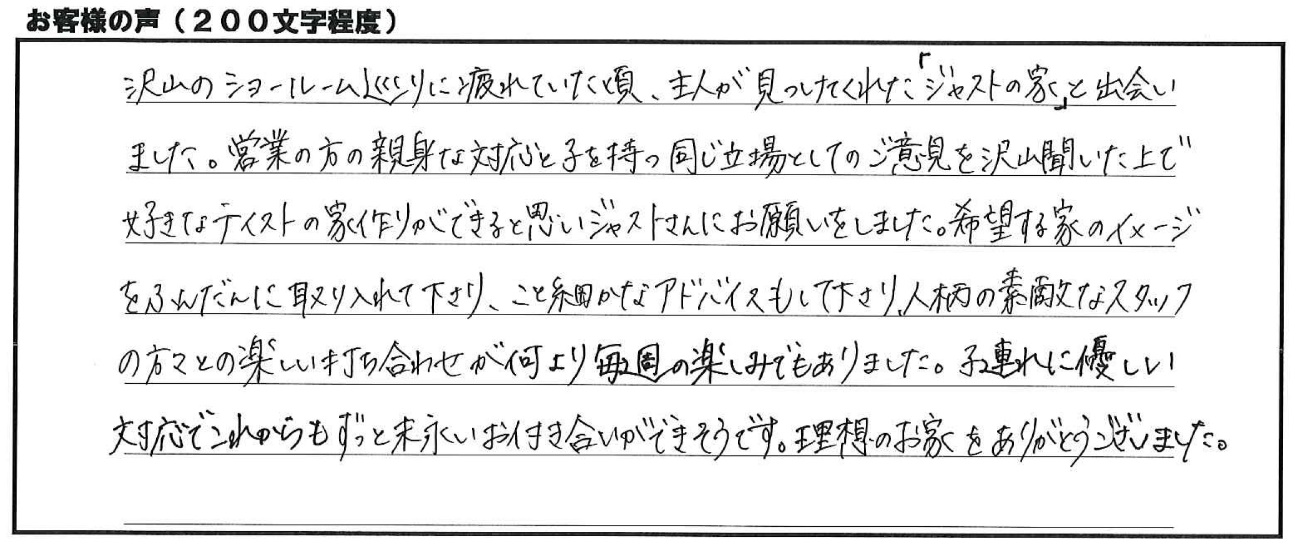 お客様の声（２００文字程度）
沢山のショールーム巡りに疲れていた頃、主人が見つけてくれた「ジャストの家」と出会い
ました。営業の方の親身な対応と子を持つ同じ立場としてのご意見を沢山聞いた上で
好きなテイストの家作りができると思いジャストさんにお願いをしました。希望する家のイメージ
をふんだんに取り入れて下さり、こと細かなアドバイスもして下さり、人柄の素敵なスタッフ
の方々との楽しい打ち合わせが何より毎週の楽しみでもありました。子連れに優しい
対応でこれからもずっと末永いお付き合いができそうです。理想のお家をありがとうございました。